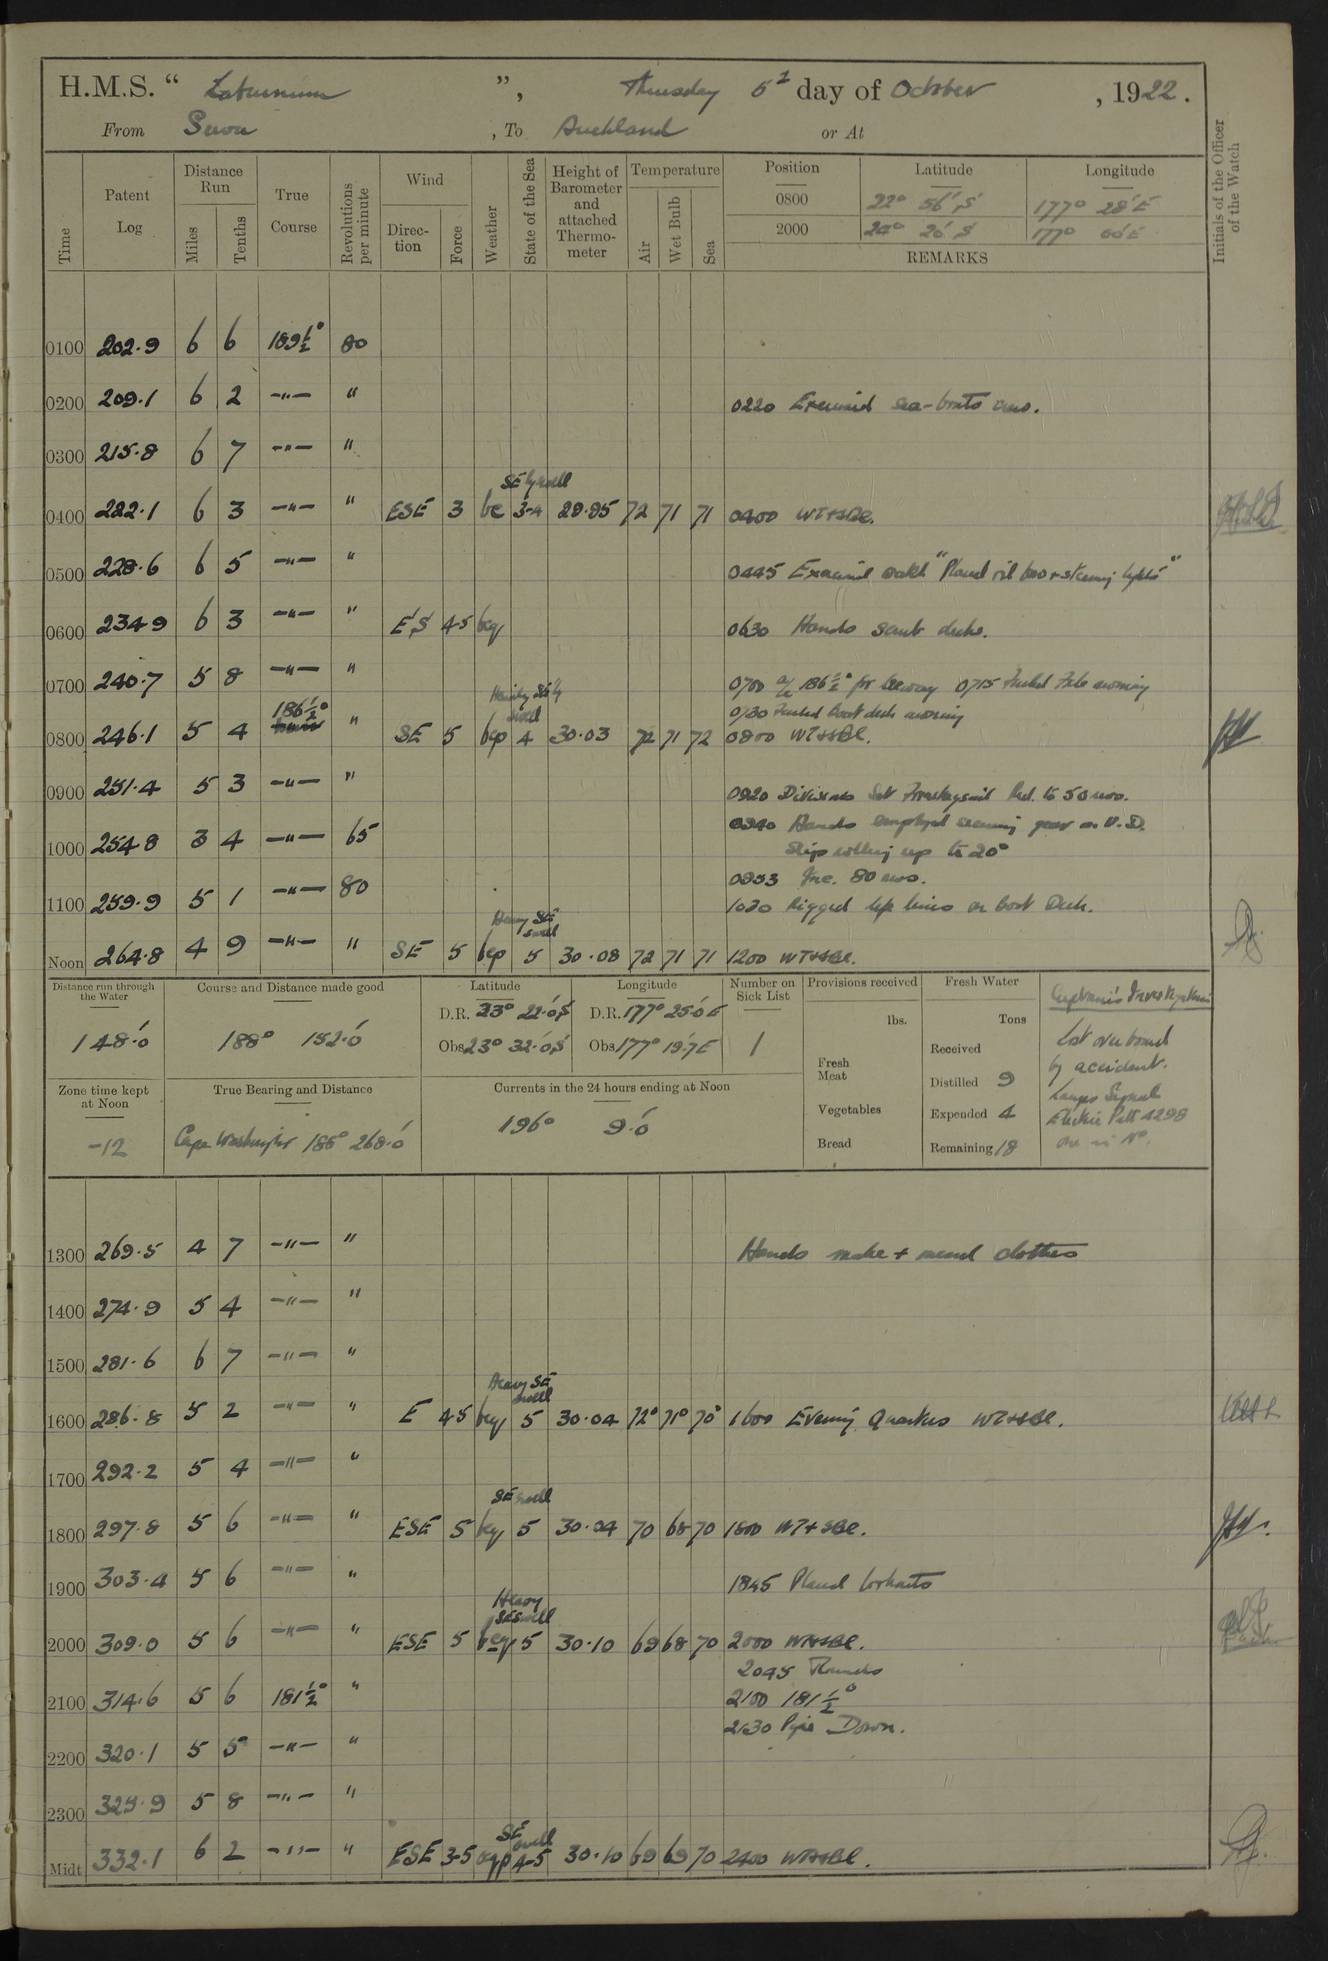 H.M.S. " Laburnum ", Thursday 5th day of October, 1922.
From Suva, To Auckland or At
Time Patent Log Distance Run Miles Tenths True Course Revolutions per minute Wind Direction Force Weather State of the Sea Height of Barometer and attached Thermometer Temperature Air Wet Bulb Sea Position Latitude Longitude Initials of the Officer of the Watch
0800 22° 56' S 177° 28' E
2000 24° 20' S 177° 00' E
REMARKS
0100 202.9 6 6 189½° 80
0200 209.1 6 2 -"- " 0220 Examined sea-boats
0300 215.8 6 7 -"- "
SE'ly swell
0400 222.1 6 3 -"- " ESE 3 bc 3-4 29.95 72 71 71 0400 WT+SBL.
0500 228.6 6 5 -"- " 0445 Examined "Placed oil bow + steaming lights"
0600 234.9 6 3 -"- " E'S 4-5 bcq 0630 Hands scrub decks.
0700 240.7 5 8 -"- " 0700 a/c 186½° for leeway 0715
Heavy SE'ly swell
0730
0800 246.1 5 4 186½° " SE 5 bcp 4 30.03 72 71 72 0800 WT+SBL.
0900 251.4 5 3 -"- " 0920 Divisions Set Forestaysail Red. to 50 revs.
0940 Hands employed securing gear on U.D.
1000 254.8 3 4 -"- 65 Ship rolling up to 20°
0953 Inc. 80 revs.
1100 259.9 5 1 -"- 80 1030 Rigged life lines on Boat Deck.
Heavy SE swell
Noon 264.8 4 9 -"- " SE 5 bcp 5 30.08 72 71 71 1200 WT+SBL.
Distance run through the Water Course and Distance made good Latitude Longitude Number on Sick List Provisions received Fresh Water
148.0' 188° 152.0'
D.R. 23° 22.0' S D.R. 177° 25.0' E
Obs 23° 32.0' S Obs 177° 19.7' E
1
lbs.
Fresh Meat
Vegetables
Bread
Tons
Received
Distilled 9
Expended 4
Remaining 18
Captain's Investigation
Lost overboard
by accident.
Lamps Signal
Electric Patt 4298
one in No.
Zone time kept at Noon True Bearing and Distance Currents in the 24 hours ending at Noon
-12 Cape Washington 268.0' 196° 9.0'
1300 269.5 4 7 -"- " Hands make + mend clothes
1400 274.9 5 4 -"- "
1500 281.6 6 7 -"- "
Heavy SE swell
1600 286.8 5 2 -"- " E 4-5 bcq 5 30.04 72° 71° 70° 1600 Evening Quarters WT+SBL.
1700 292.2 5 4 -"- "
SE swell
1800 297.8 5 6 -"- " ESE 5 bcq 5 30.04 70 68 70 1800 WT+SBL.
1900 303.4 5 6 -"- " 1845 Placed lookouts
Heavy SE swell
2000 309.0 5 6 -"- " ESE 5 bcq 5 30.10 69 68 70 2000 WT+SBL.
2045 Rounds
2100 314.6 5 6 181½° " 2100 181½°
2130 Pipe Down.
2200 320.1 5 5 -"- "
2300 325.9 5 8 -"- "
SE swell
Midt 332.1 6 2 -"- " ESE 3-5 cqp 4-5 30.10 69 69 70 2400 WT+SBL.